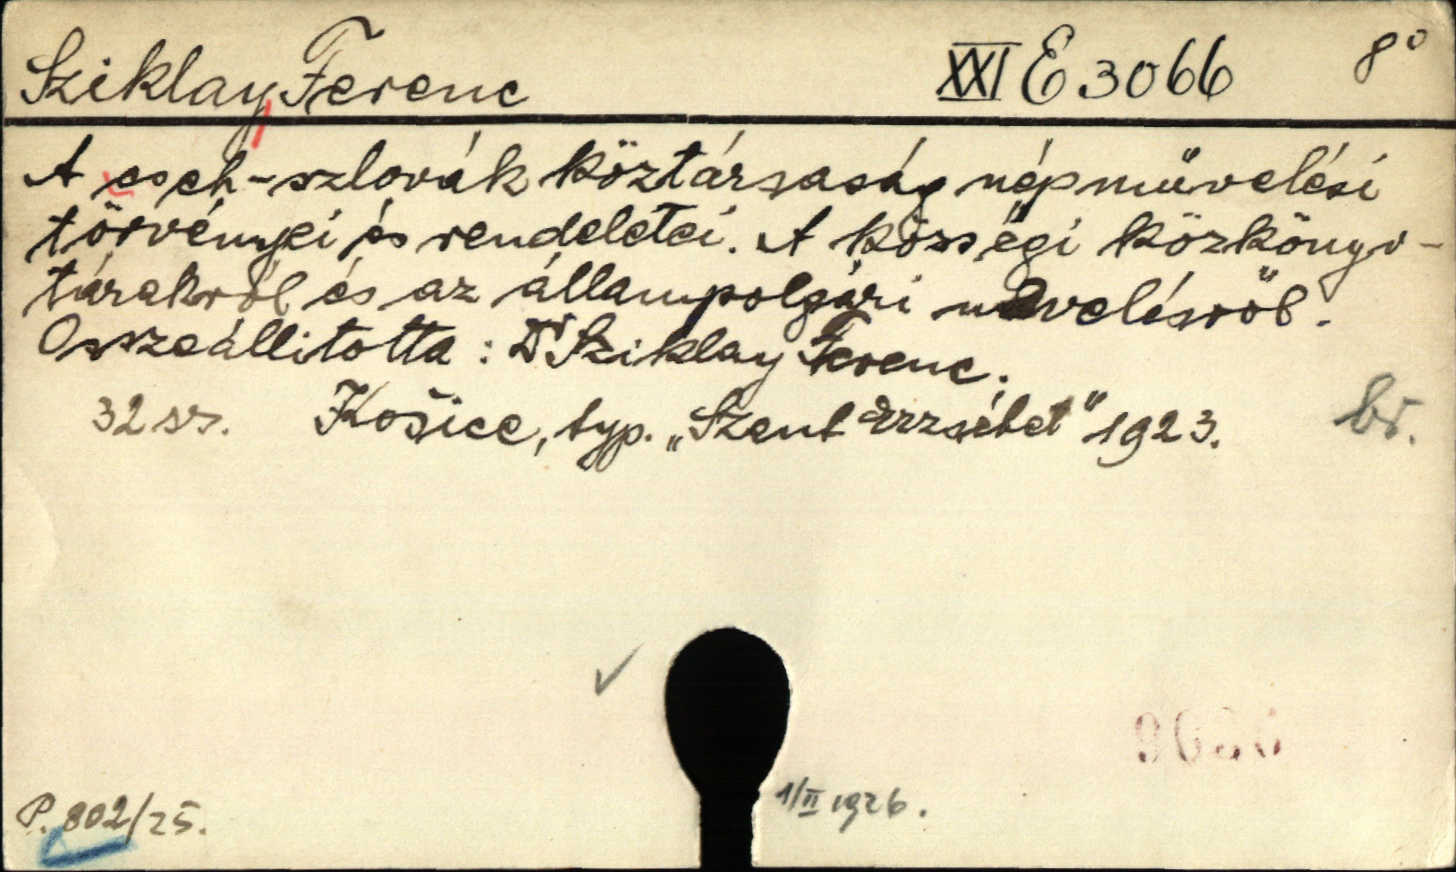 Sziklay Ferenc XXI E 3066 8°
A cseh-szlovák köztársaság népművelési
törvényei és rendeletei. A községi közkönyv-
tárakról és az állampolgári nevelésről.
Osszeállitotta: Dr Sziklay Ferenc.
32 str. Košice, typ. „Szent Erzsébet" 1923. br.
P. 802/25.
1/II 1926.